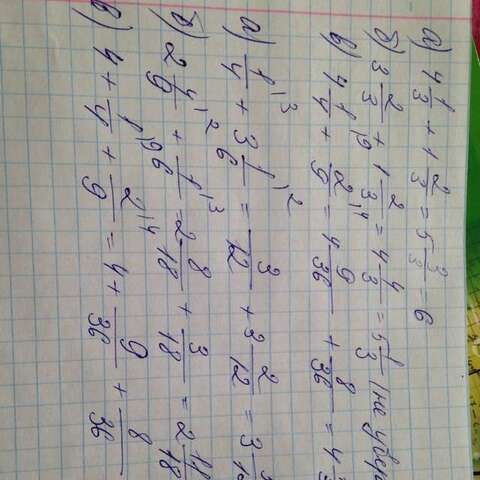 а) 4 1/3 + 1 2/3 = 5 3/3 = 6
б) 3 2/3 + 1 2/3 = 4 4/3 = 5 1/3 (не
в) 4 1/4 + 2/9 = 4 9/36 + 8/36 = 4
а) 1/4 + 3 1/6 = 3/12 + 3 2/12 = 3
б) 2 4/9 + 1/6 = 2 8/18 + 3/18 = 2 11/18
в) 4 + 1/4 + 2/9 = 4 + 9/36 + 8/36